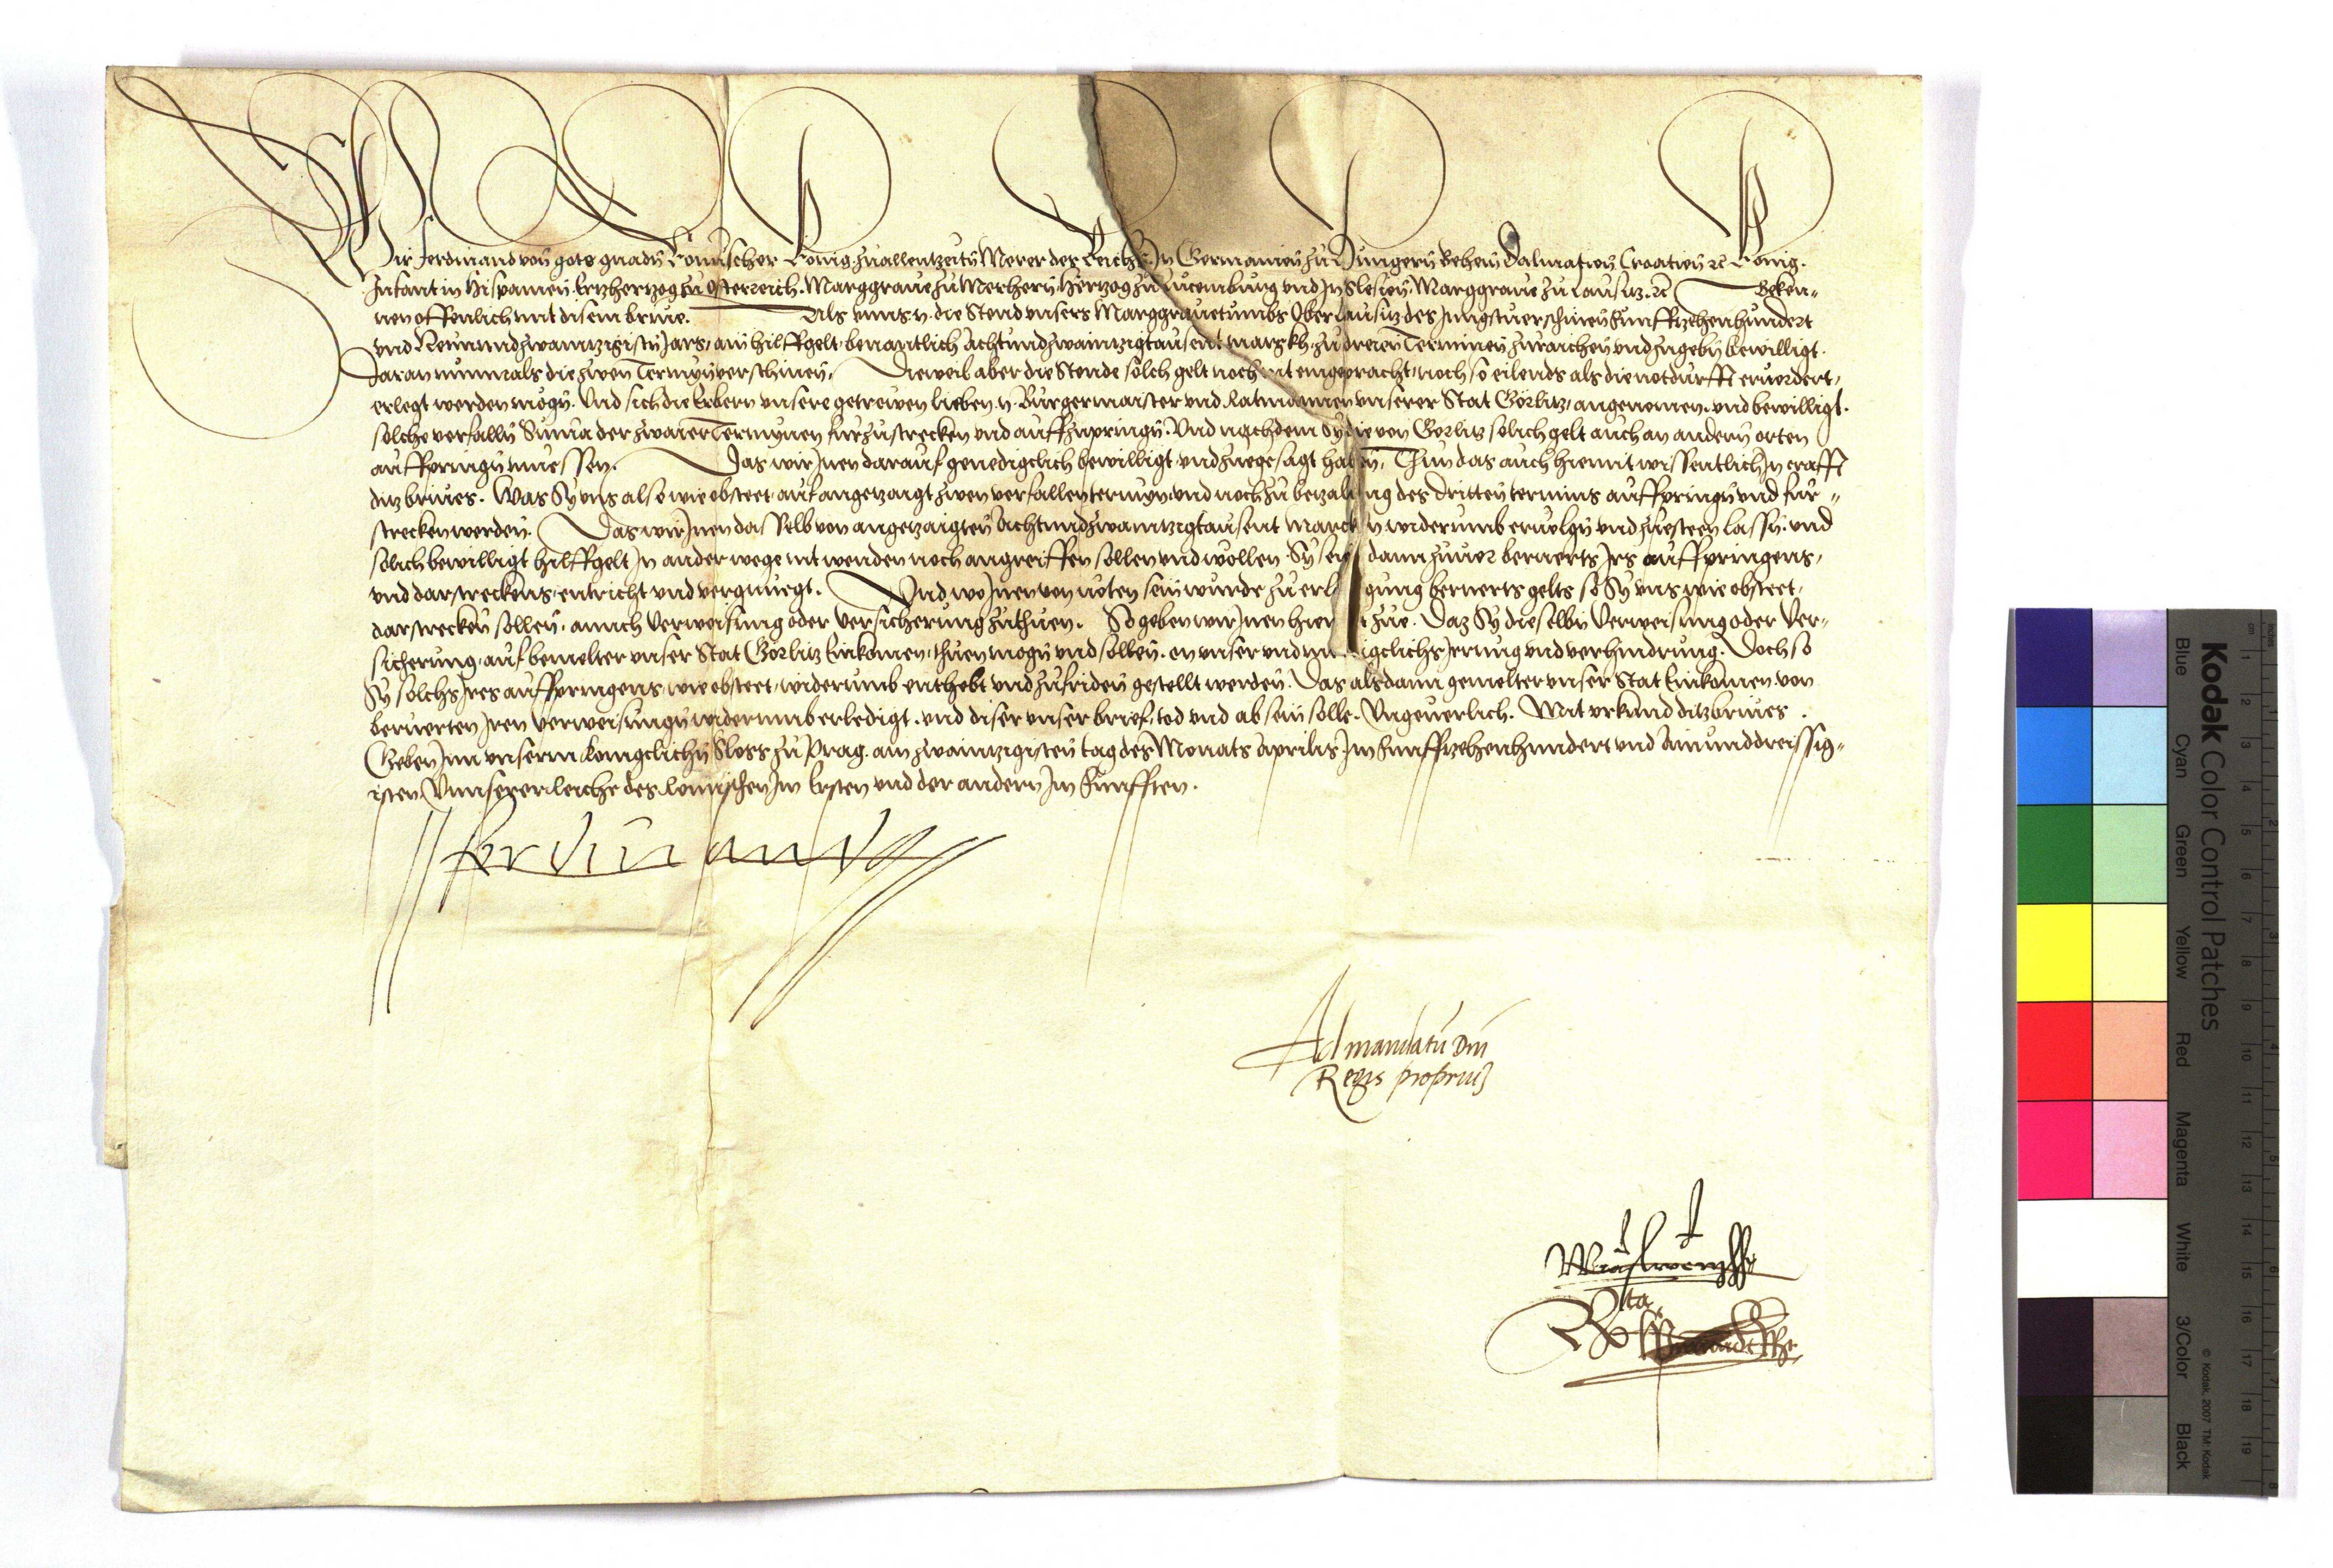 Wir Ferdinand von gots gnadn Römischer König zu allentzeitn Merer des Reichs In Germanien zu Hungern Behem Dalmatien Croatien rc König.
Infant in Hispanien, Ertzherzog zu Osterreich. Marggraue zu Merhern, Hertzog zu Lucemburg vnd In Slesien, Marggraue zu Lausitz. rc Beken-
nen offenlich mit disem briue. Als vnns n. die Stend vnsers Marggrauetumbs Ober Lausitz des Jungstuerschinen Funffzehenhundert
vnd Neunundzwaintzigistn Jars, ain hilffgelt, benantlich Achtundzwaintzigtausent markh, zu dreien Terminen zuraichen vnd zugebn bewilligt.
Daran nunmals die zwen Termyn verschinen, Dieweil aber die Stende solch gelt noch nit eingepracht, noch so eilends als die notdurfft eruordert,
erlegt werden mögn. Vnd sich die Erbern vnsere getrewen lieben. n. Burgermaister vnd Ratmannen vnserer Stat Görlitz, angenomen, vnd bewilligt.
solche verfalln Suma der zwaier Termynen furzustrecken vnd auffzupringn. Vnd nachdem Sy die von Gorlitz solich gelt auch an andern orten
auffpringn muessen. Das wir Inen darauf genedigclich bewilligt vnd zuegesagt haben, Thun das auch hiemit wissentlich In crafft
ditz briues. Was Sy vns also wie obsteet, auf angetzaigt zwen verfallen termyn, vnd noch zu betzalung des dritten termins auffpringn vnd fur-
strecken werden. Das wir Inen dasselb von angetzaigten Achtundzwaintzigtausent Marckn widerumb eruolgn vnd zuesteen lassn. vnd
solich bewilligt hilffgelt In ander wege nit wenden noch angreiffen sollen vnd wöllen. Sy sein dann zuuor beruerts Irs auffpringens,
vnd darstreckens, entricht vnd vergnuegt. Vnd wo Inen von nöten sein wurde zu erlegung beruerts gelts so Sy vns wie obsteet,
darstrecken sollen, ainich Verweisung oder Versicherung zuthuen. So geben wir Inen hiemit zue. Daz Sy dieselbn Verweisung oder Ver-
sicherung, auf bemelter vnser Stat Görlitz Einkomen, thuen mögn vnd sollen. on vnser vnd menigclichs Irrung vnd verhindrung. Doch so
Sy solchs Ires auffpringens, wie obsteet, widerumb enthebt vnd zufriden gestellt werden. Das alsdann gemelter vnser Stat Einkomen von
beruerten Iren verweisungn widerumb erledigt. vnd diser vnser brief, tod vnd ab sein solle. Vngeuerlich. Mit vrkund ditz briues.
Geben Im vnserm Königclichn Sloss zu Prag. am zwaintzigisten tag des Monats Aprilis Im Funffzehenhundert vnd Ainunddreissig-
isten, Vnnserer Reiche des Römischen Im Ersten vnd der andern Im Funfften.
Ferdinand
Ad mandatu Dni
Regis propriu